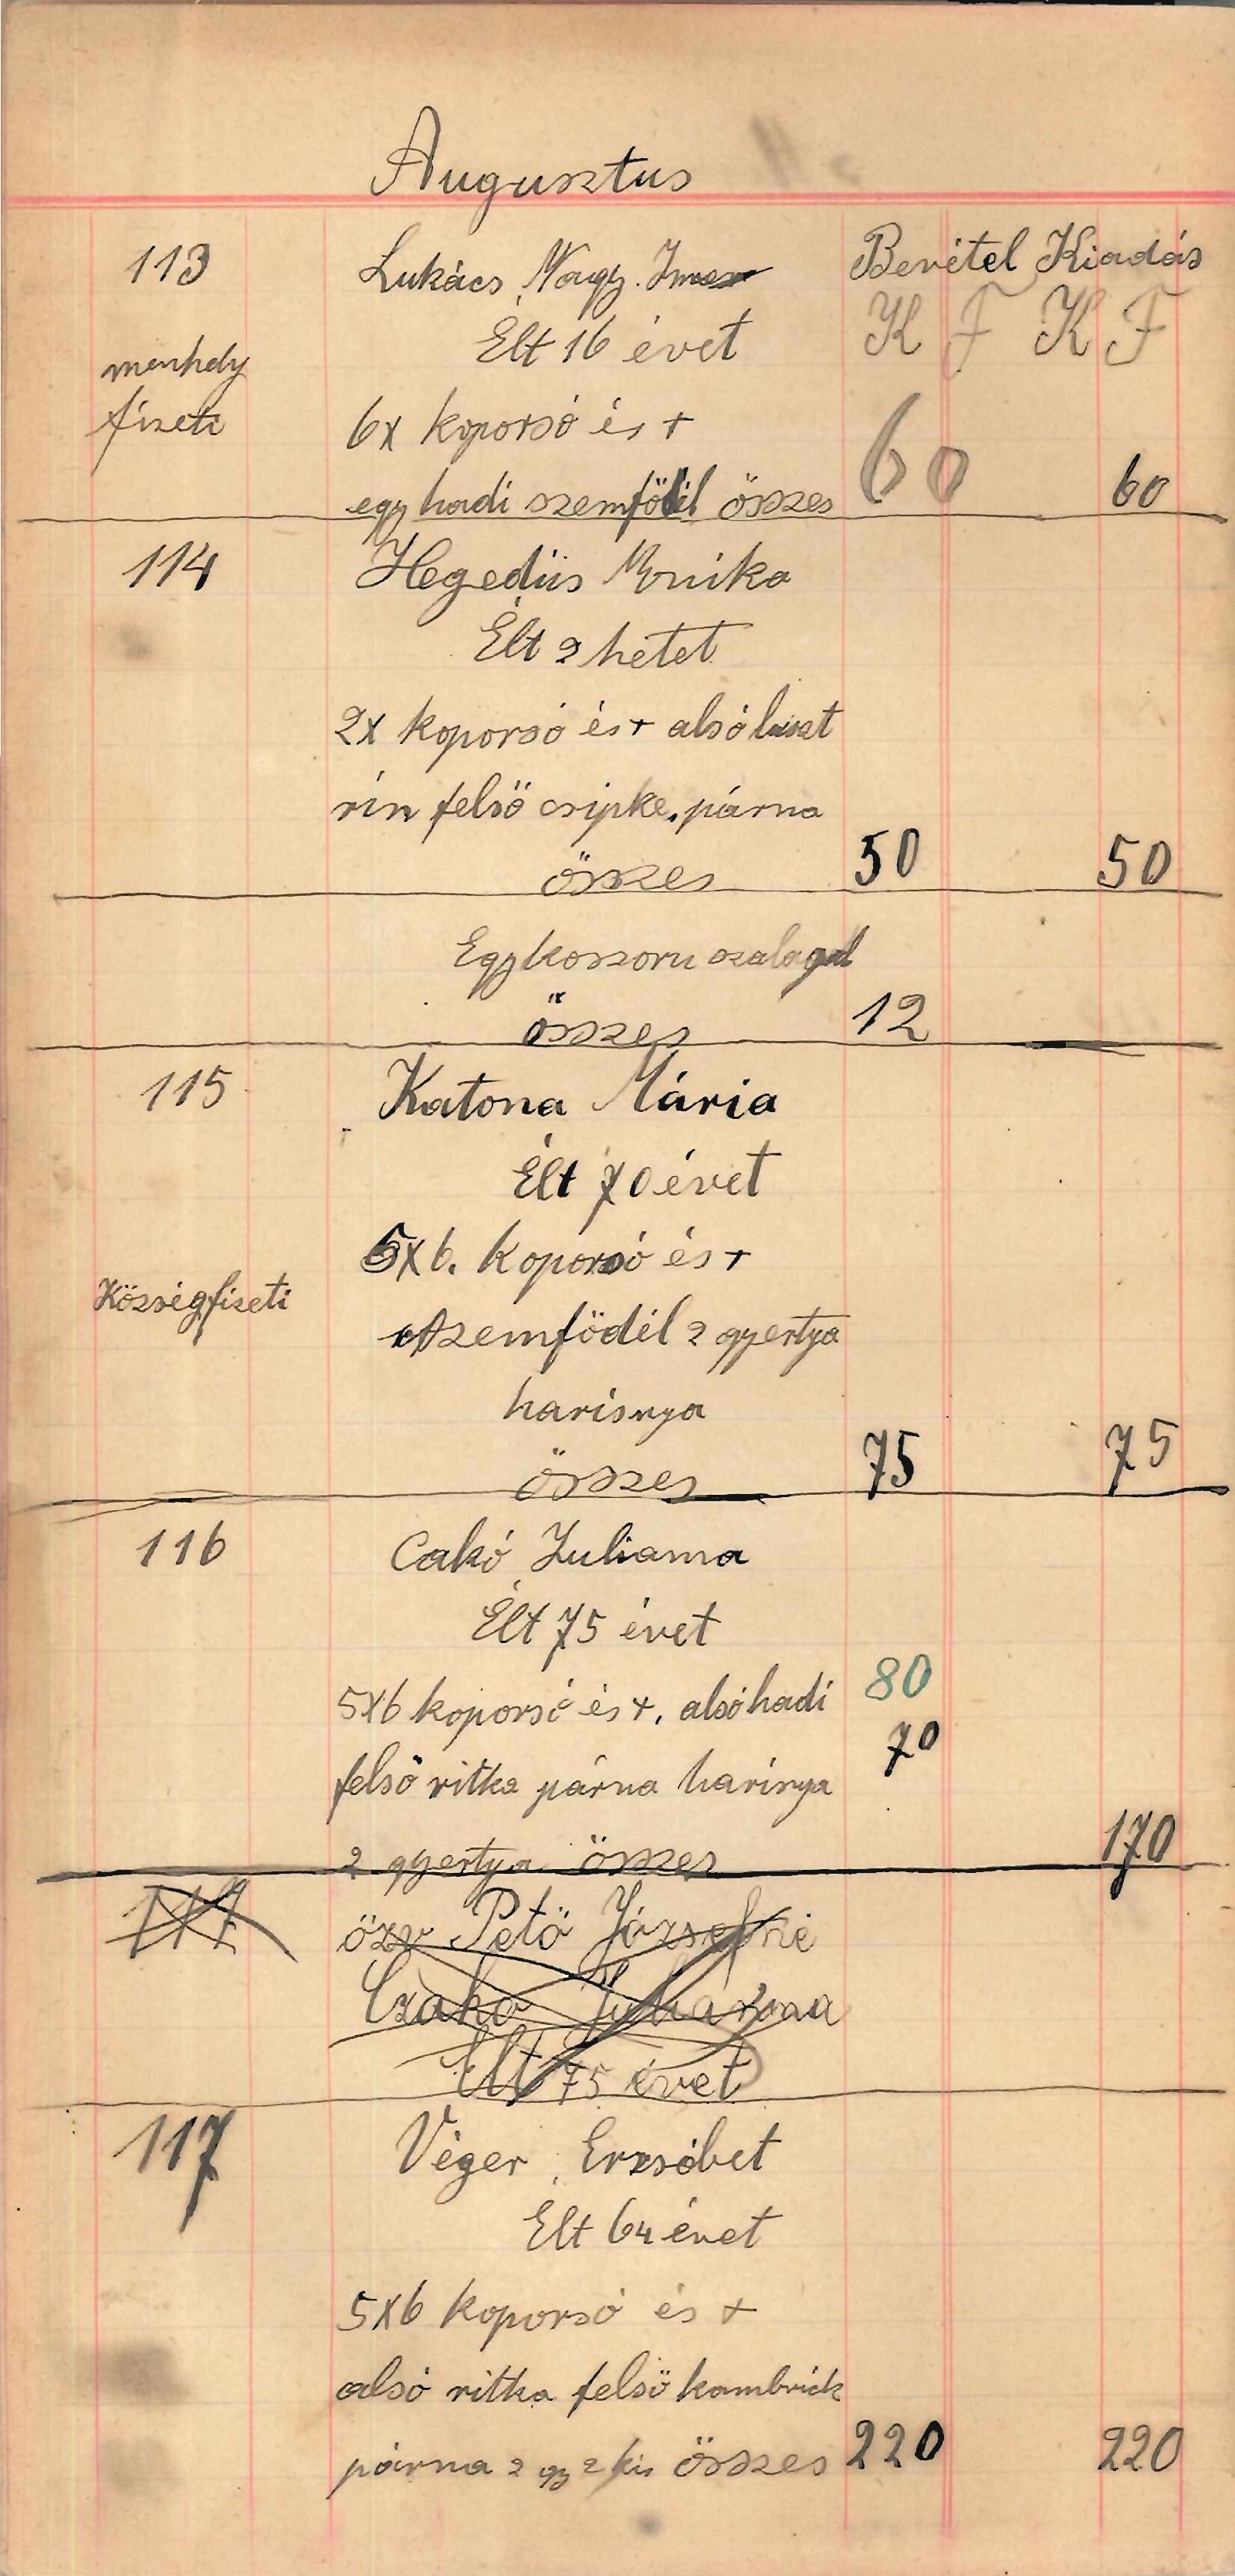 Augusztus
113 Lukács Nagy. Imre Bevétel Kiadás
Élt 16 évet K F K F
menhely
fizeti 6x koporsó és +
egy hadi szemfödél összes 60 60
114 Hegedüs Mónika
Élt 2 hétet
2x koporsó és + alsó luszt
rin felső csipke. párna
összes 50 50
Egy koszoru szalagal
összes 12
115 Katona Mária
Élt 70 évet
5x6. koporsó és +
Községfizeti
szemfödél 2 gyertya
harisnya
összes 75 75
116 Cakó Juliama
Élt 75 évet
80
5x6 koporsó és +. alsó hadi
70
felső ritka párna harisnya
2 gyertya összes 170
117 özv Pető Józsefné
Czako Julianna
Élt 75 évet
117 Véger Erzsébet
Elt 64 évet
5x6 koporsó és +
alsó ritka felső kambrick
párna 2 gy 2 kis összes 220 220